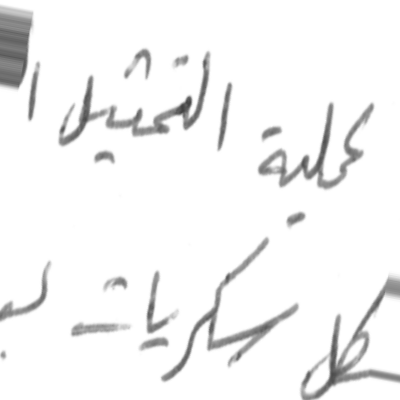 عملية التمثيل ا
كل سكريات